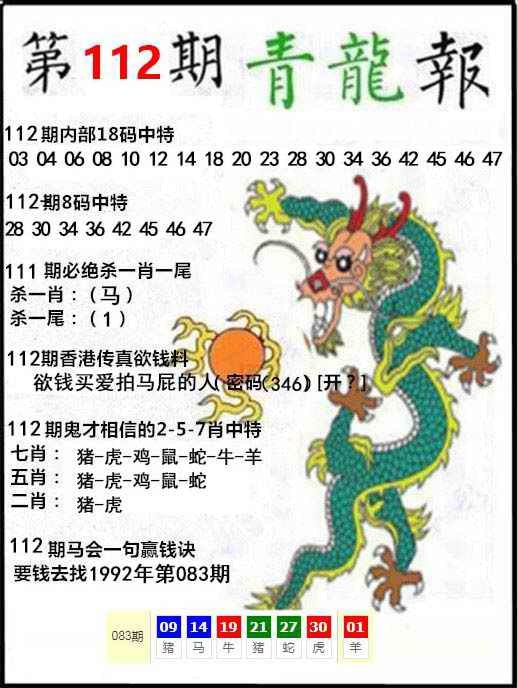 第112期 青龍報
112期内部18码中特
03 04 06 08 10 12 14 18 20 23 28 30 34 36 42 45 46 47
112期8码中特
28 30 34 36 42 45 46 47
111 期必绝杀一肖一尾
杀一肖：（马）
杀一尾：（1）
112期香港传真欲钱料
欲钱买爱拍马屁的人(密码(346) [开？]
112期鬼才相信的2-5-7肖中特
七肖： 猪-虎-鸡-鼠-蛇-牛-羊
五肖： 猪-虎-鸡-鼠-蛇
二肖： 猪-虎
112期马会一句赢钱诀
要钱去找1992年第083期
083期 09 14 19 21 27 30 01
猪 马 牛 猪 蛇 虎 羊